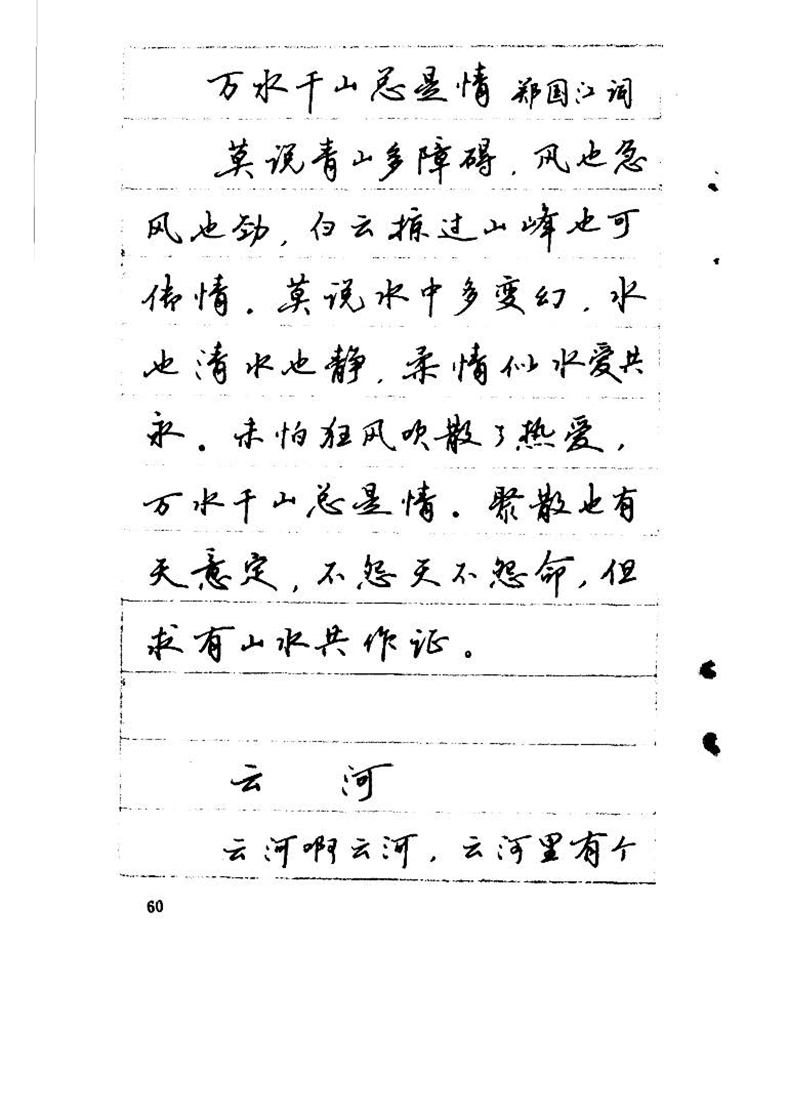 万水千山总是情 郑国江词
莫说青山多障碍，风也急
风也劲，白云掠过山峰也可
传情。莫说水中多变幻，水
也清水也静，柔情似水爱共
永。未怕狂风吹散了热爱，
万水千山总是情。聚散也有
天意定，不怨天不怨命，但
求有山水共作证。
云 河
云河啊云河，云河里有个
60